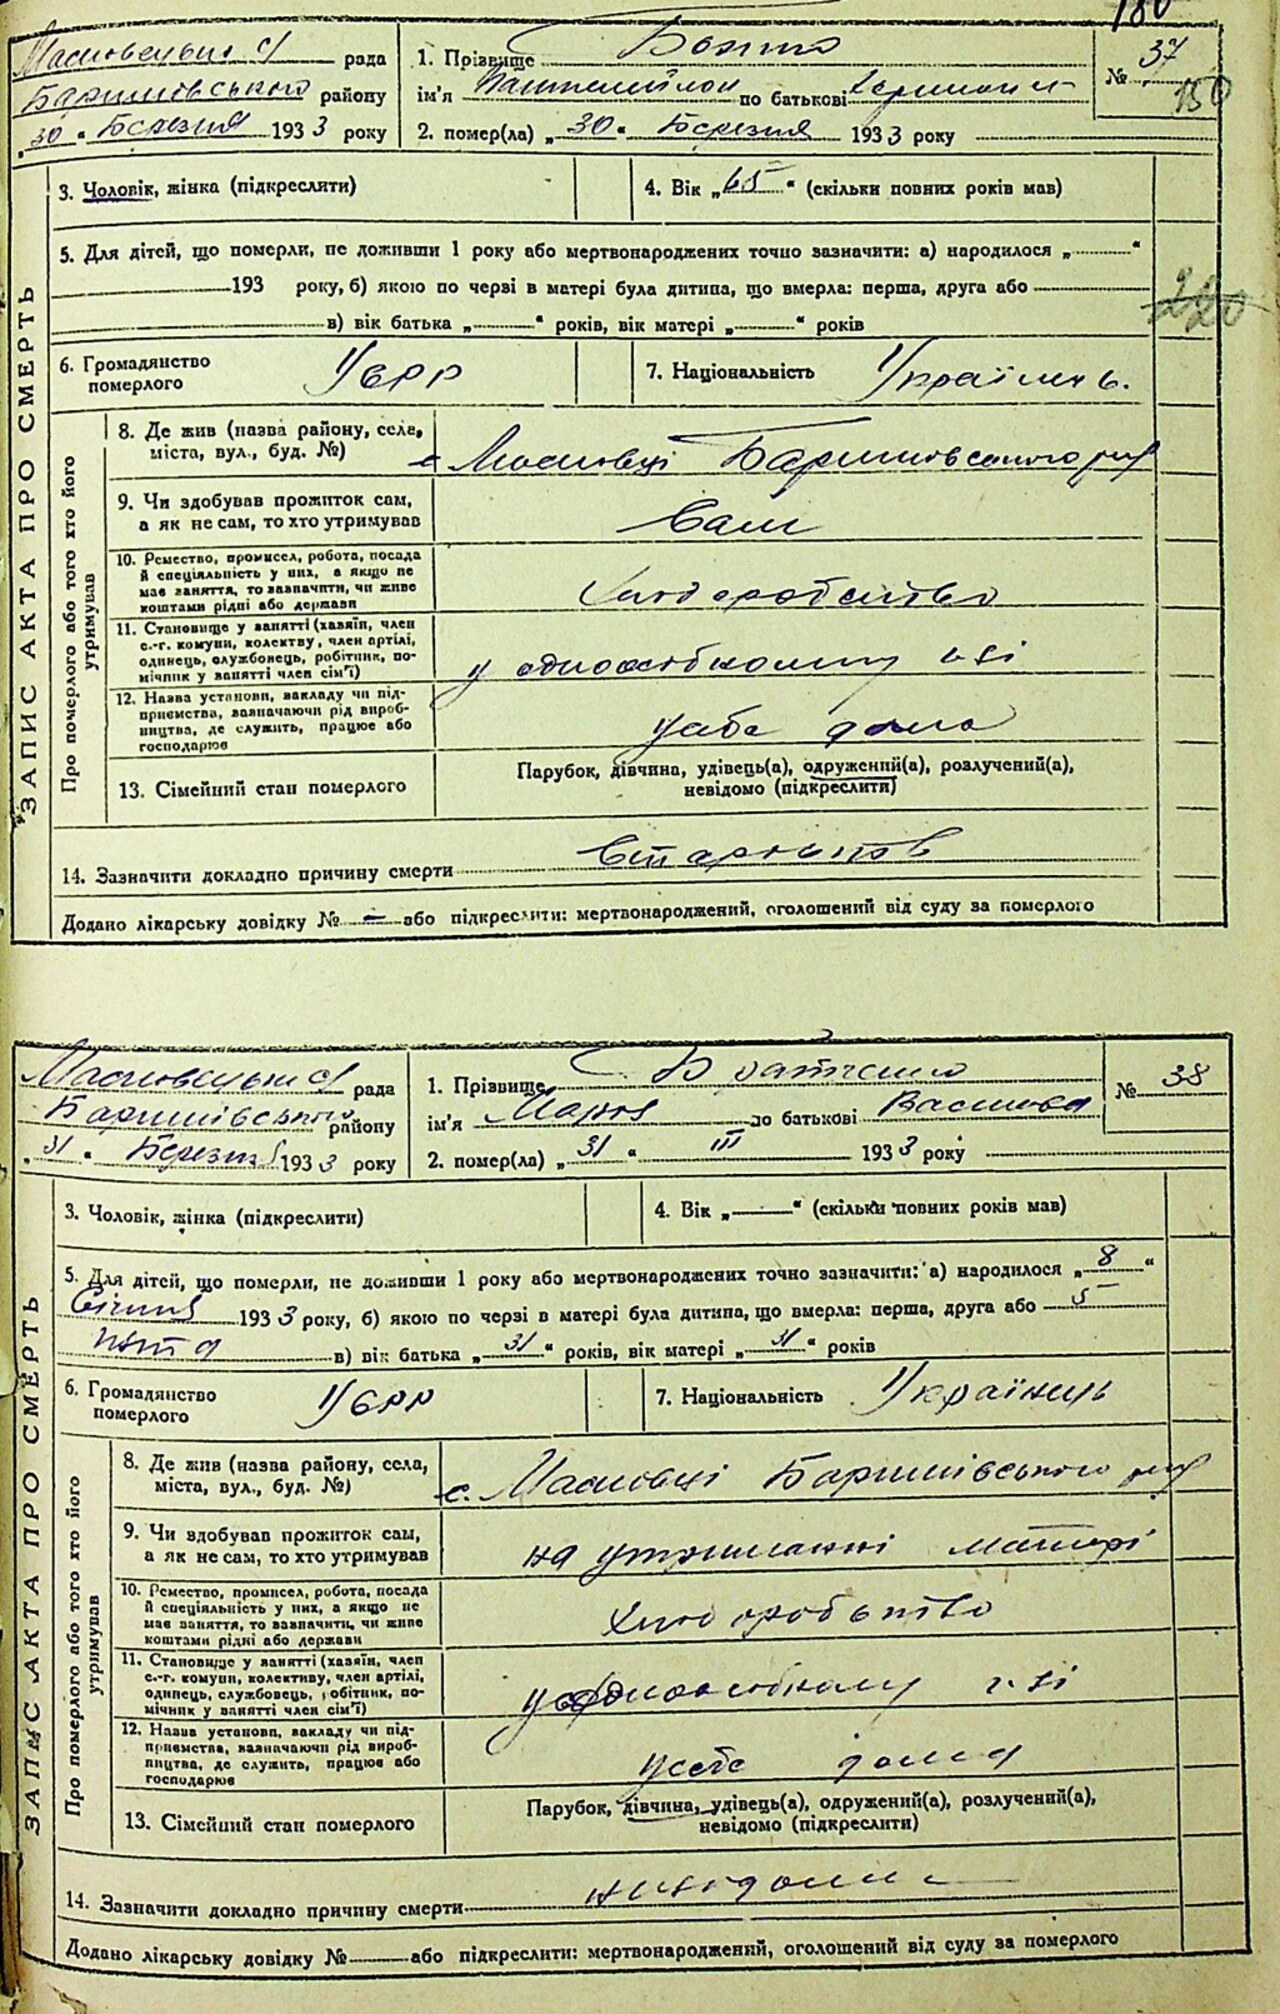 180
Масковецька с/ рада
Баришівського району
„30“ Березня 1933 року
1. Прізвище
ім'я Пантелеймон по батькові
2. помер(ла) „30“ Березня 1933 року
№ 37
150
ЗАПИС АКТА ПРО СМЕРТЬ
3. Чоловік, жінка (підкресляти)
4. Вік „65“ (скільки повних років мав)
5. Для дітей, що померли, не доживши 1 року або мертвонароджених точно зазначити: а) народилося „ “
193 року, б) якою по черзі в матері була дитина, що вмерла: перша, друга або
в) вік батька „ “ років, вік матері „ “ років
220
6. Громадянство
померлого
УСРР
7. Національність Українець.
Про померлого або того хто його
утримував
8. Де жив (назва району, села,
міста, вул., буд. №)
с Масковці Баришовського р-ну
9. Чи здобував прожиток сам,
а як не сам, то хто утримував
Сам
10. Ремество, промисел, робота, посада
й спеціяльність у них, а якщо не
має заняття, то зазначити, чи живе
коштами рідні або держави
Хліборобство
11. Становище у занятті (хазяїн, член
с.-г. комуни, колектву, член артілі,
одинець, службовець, робітник, по-
мічник у занятті член сім'ї)
у одноосібному г-ві
12. Назва установи, закладу чи під-
приємства, зазначаючи рід вироб-
ництва, де служить, працює або
господарює
у себе дома
13. Сімейний стан померлого
Парубок, дівчина, удівець(а), одружений(а), розлучений(а),
невідомо (підкреслити)
14. Зазначити докладно причину смерти
Додано лікарську довідку № – або підкреслити: мертвонароджений, оголошений від суду за померлого
Масковецька с/ рада
Баришівського району
„31“ Березня 1933 року
1. Прізвище Братченко
ім'я Марія по батькові Василівна
2. помер(ла) „31“ III 1933 року
№ 38
ЗАПИС АКТА ПРО СМЕРТЬ
3. Чоловік, жінка (підкреслити)
4. Вік „—“ (скільки повних років мав)
5. Для дітей, що померли, не доживши 1 року або мертвонароджених точно зазначити: а) народилося „8“
Січня 1933 року, б) якою по черзі в матері була дитина, що вмерла: перша, друга або 5
п'ята в) вік батька „31“ років, вік матері „31“ років
6. Громадянство
померлого
УСРР
7. Національність Українець
Про померлого або того хто його
утримував
8. Де жив (назва району, села,
міста, вул., буд. №)
с. Масковці Баришівського р-ну
9. Чи здобував прожиток сам,
а як не сам, то хто утримував
на утриманні матері
10. Ремество, промисел, робота, посада
й спеціяльність у них, а якщо не
має заняття, то зазначити, чи живе
коштами рідні або держави
Хліборобство
11. Становище у занятті (хазяїн, член
с.-г. комуни, колективу, член артілі,
одинець, службовець, робітник, по-
мічник у занятті член сім'ї)
у одноосібному г-ві
12. Назва установи, закладу чи під-
приємства, зазначаючи рід вироб-
ництва, де служить, працює або
господарює
у себе дома
13. Сімейний стан померлого
Парубок, дівчина, удівець(а), одружений(а), розлучений(а),
невідомо (підкреслити)
14. Зазначити докладно причину смерти невідома
Додано лікарську довідку № або підкреслити: мертвонароджений, оголошений від суду за померлого